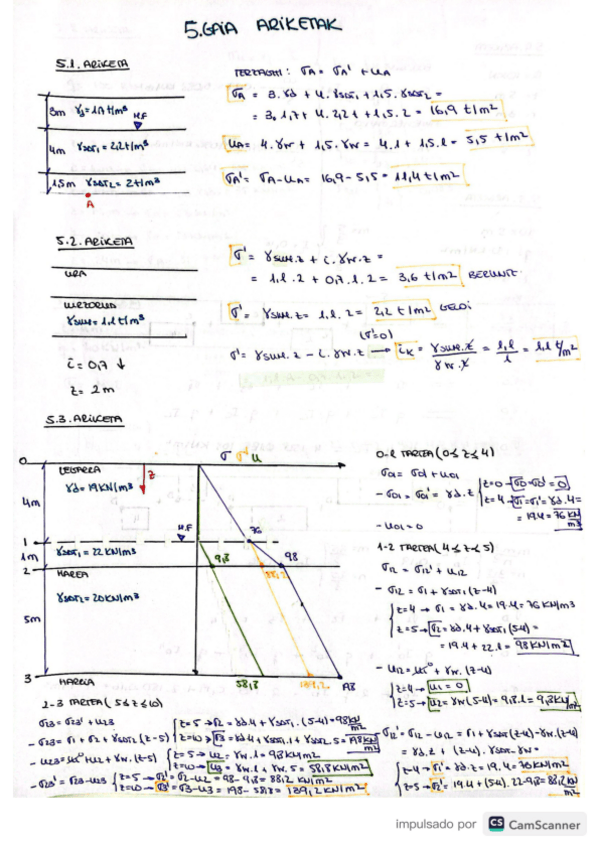 5. GAIA ARIKETAK
5.1. ARIKETA
3m γd = 1,7 t/m³
M.F.
4m γsat1 = 2,2 t/m³
1,5m γsat2 = 2 t/m³
A
TERZAGHI: σA = σA' + uA
σA = 3.γd + 4.γsat1 + 1,5.γsat2 =
= 3.1,7 + 4.2,2 + 1,5.2 = 16,9 t/m²
uA = 4.γw + 1,5.γw = 4.1 + 1,5.1 = 5,5 t/m²
σA' = σA - uA = 16,9 - 5,5 = 11,4 t/m²
5.2. ARIKETA
URA
γsum = 1,1 t/m³
i = 0,7 ↓
z = 2m
σ' = γsum.z + i.γw.z =
= 1,1.2 + 0,7.1.2 = 3,6 t/m²
σ' = γsum.z = 1,1.2 = 2,2 t/m² GELDI
(σ'=0)
σ' = γsum.z - i.γw.z → ik = γsum.z / γw.z = 1,1 / 1 = 1,1 t/m²
5.3. ARIKETA
σ σ' u
0
LEGARRA
γd = 19 KN/m³
z
4m
M.F.
76
1
1m γsat1 = 22 KN/m³
9,8 88,2 98
2
HAREA
γsat2 = 20 KN/m³
5m
3
HAREA
58,8 139,2
0-1 TARTEA (0≤z≤4)
σ01 = σ01' + u01
- σ01 = σ01' = γd.z
z=0 → σ0 = σ0' = 0
z=4 → σ1 = σ1' = γd.4 =
= 19.4 = 76 KN/m³
- u01 = 0
1-2 TARTEA (4≤z≤5)
σ12 = σ12' + u12
- σ12 = σ1 + γsat1 (z-4)
z=4 → σ1 = γd.4 = 19.4 = 76 KN/m3
z=5 → σ2 = γd.4 + γsat1 (5-4) =
= 19.4 + 22.1 = 98 KN/m²
- u12 = u1⁰ + γw.(z-4)
z=4 → u1 = 0
z=5 → u2 = γw (5-4) = 9,8.1 = 9,8 KN/m²
- σ12' = σ12 - u12 = σ1 + γsat (z-4) - γw.(z-4)
= γd.z + (z-4).γsat - γw =
z=4 → σ1' = γd.z = 19.4 = 76 KN/m²
z=5 → σ2' = 19.4 + (5-4).22 - 9,8 = 88,2 KN/m²
2-3 TARTEA (5≤z≤10)
σ23 = σ23' + u23
- σ23 = σ1 + σ2 + γsat2 (z-5)
z=5 → σ2 = γd.4 + γsat1.(5-4) = 98 KN/m²
z=10 → σ3 = γd.4 + γsat1.1 + γsat2.5 = 198 KN/m²
- u23 = u1⁰ + u2 + γw.(z-5)
z=5 → u2 = γw.1 = 9,8 KN/m2
z=10 → u3 = γw.1 + γw.5 = 58,8 KN/m²
- σ23' = σ23 - u23
z=5 → σ2' = σ2 - u2 = 98 - 9,8 = 88,2 KN/m²
z=10 → σ3' = σ3 - u3 = 198 - 58,8 = 139,2 KN/m²
impulsado por CS CamScanner